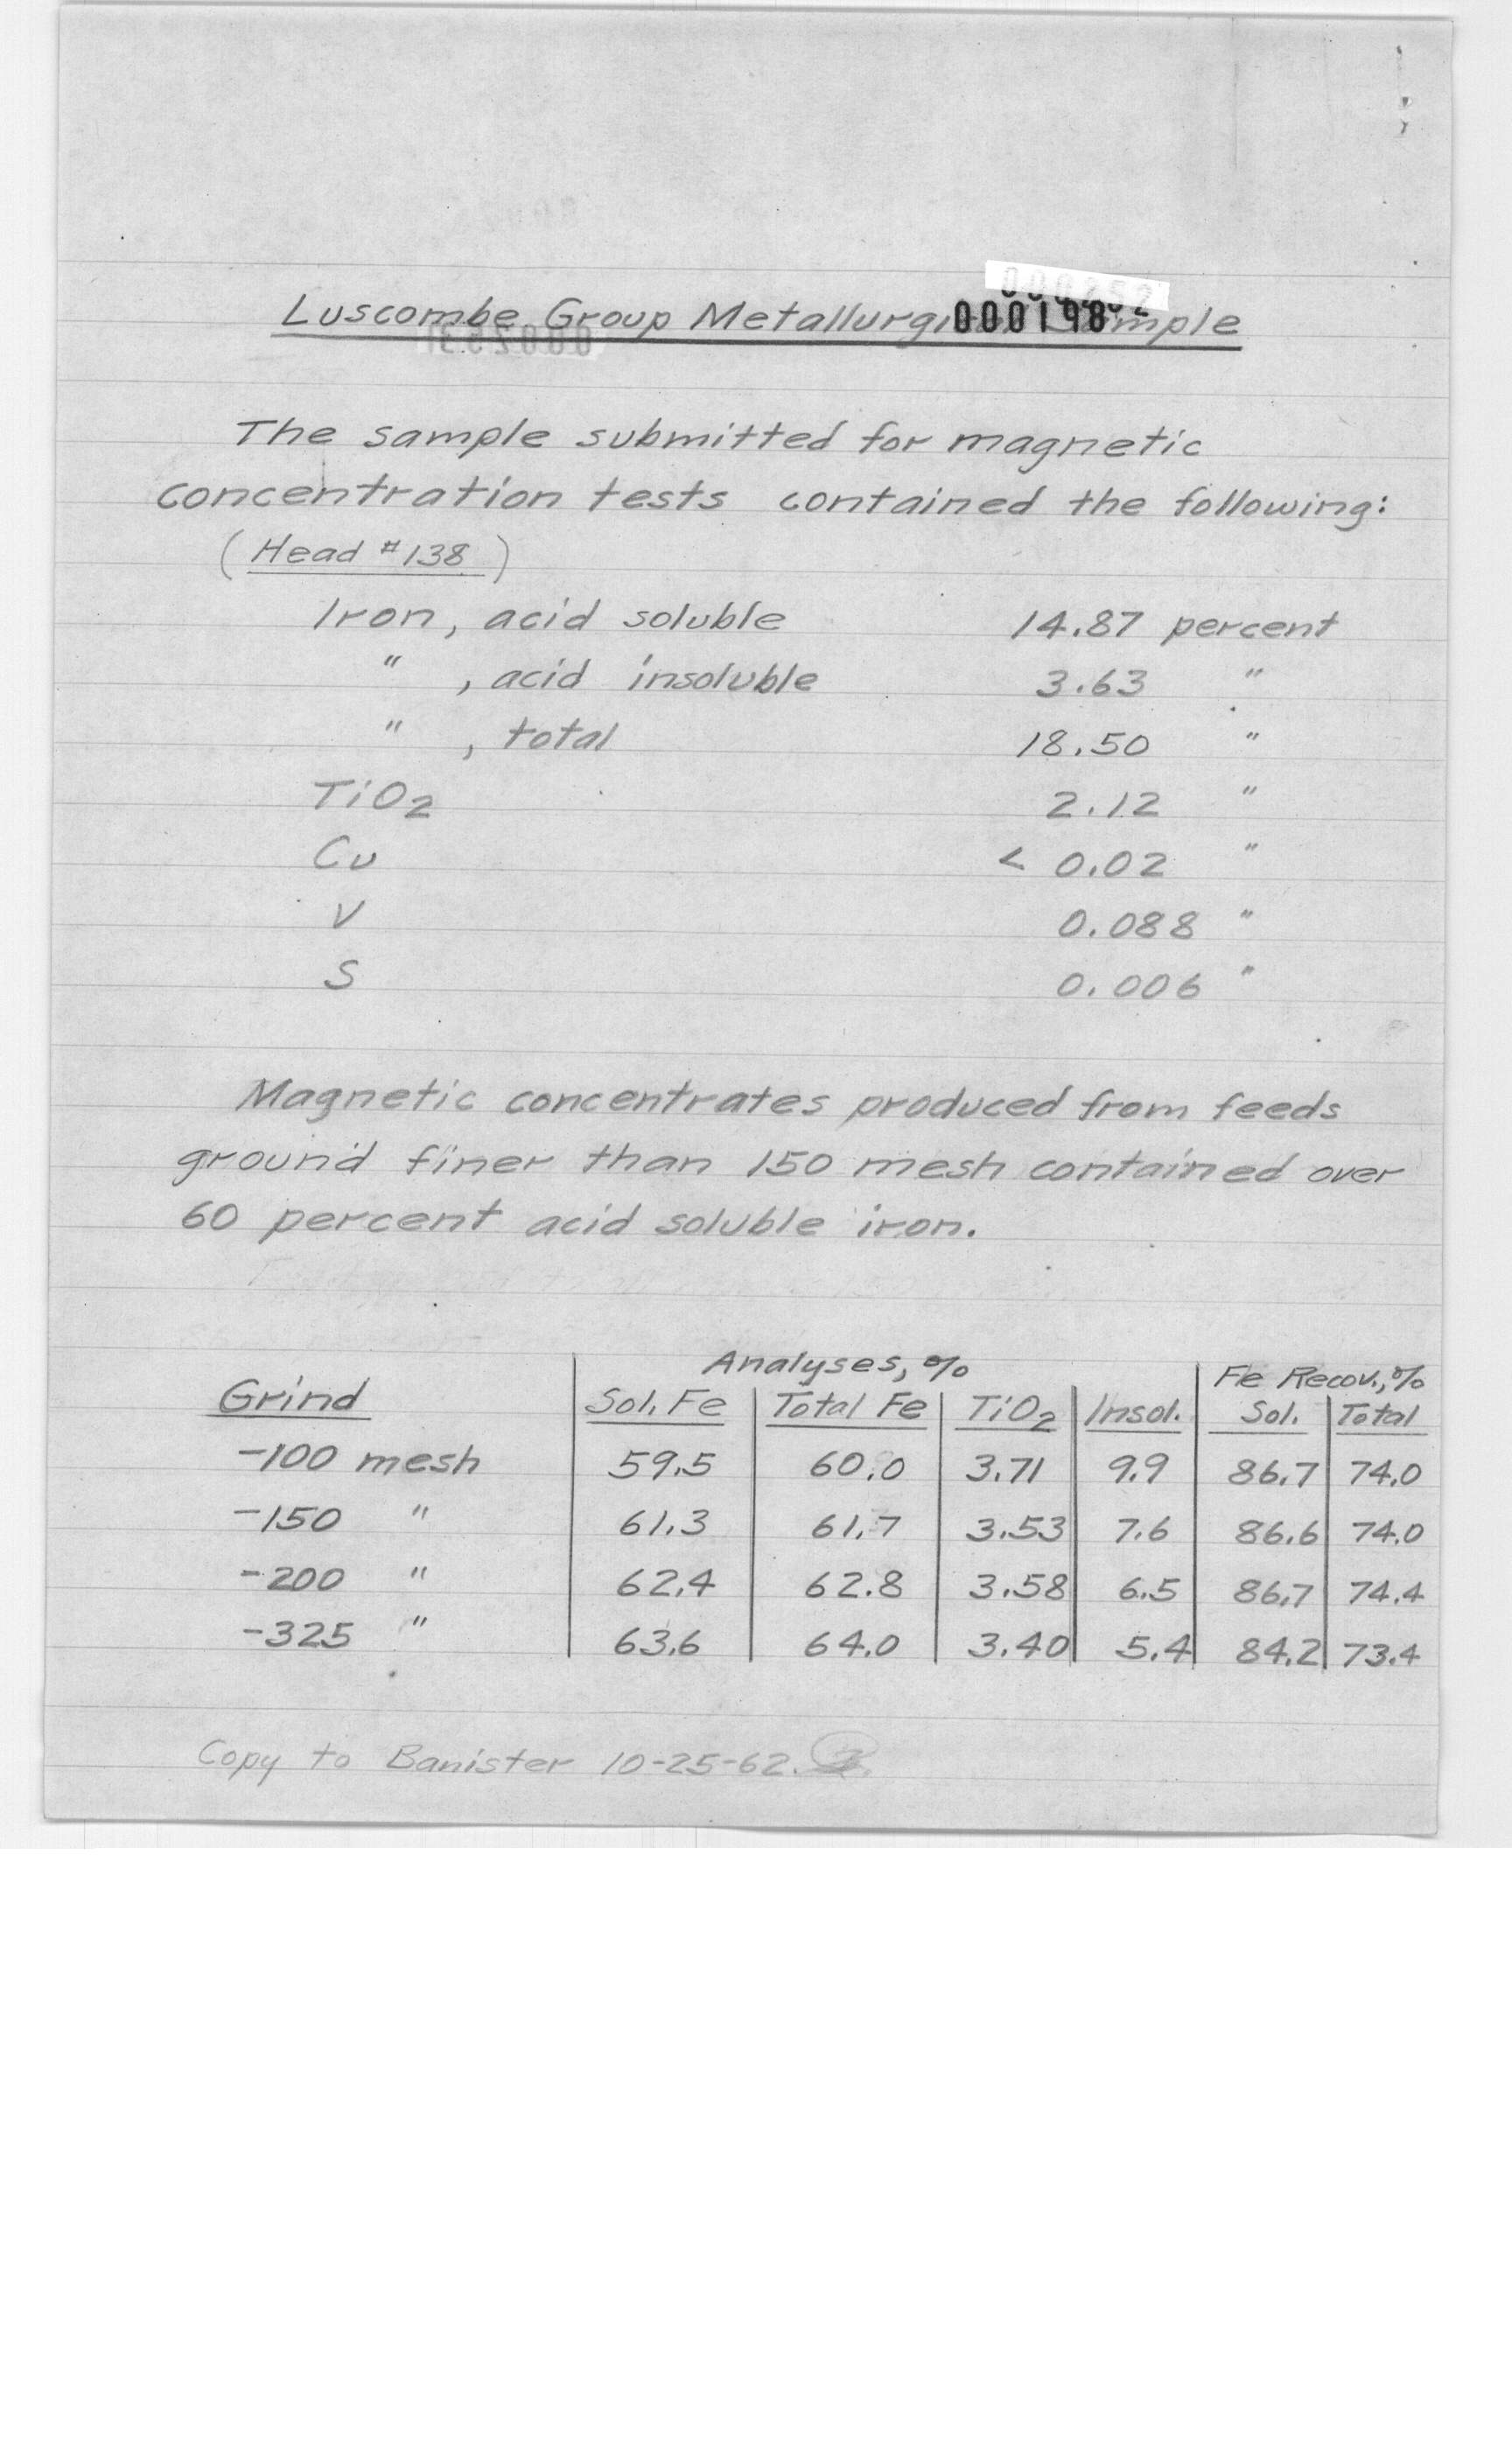 Luscombe Group Metallurgi 000198 mple
The sample submitted for magnetic
concentration tests contained the following:
(Head #138)
Iron, acid soluble 14.87 percent
" , acid insoluble 3.63 "
" , total 18.50 "
TiO2 2.12 "
Cu < 0.02 "
V 0.088 "
S 0.006 "
Magnetic concentrates produced from feeds
ground finer than 150 mesh contained over
60 percent acid soluble iron.
Analyses, % Fe Recov., %
Grind Sol. Fe Total Fe TiO2 Insol. Sol. Total
-100 mesh 59.5 60.0 3.71 9.9 86.7 74.0
-150 " 61.3 61.7 3.53 7.6 86.6 74.0
-200 " 62.4 62.8 3.58 6.5 86.7 74.4
-325 " 63.6 64.0 3.40 5.4 84.2 73.4
Copy to Banister 10-25-62.